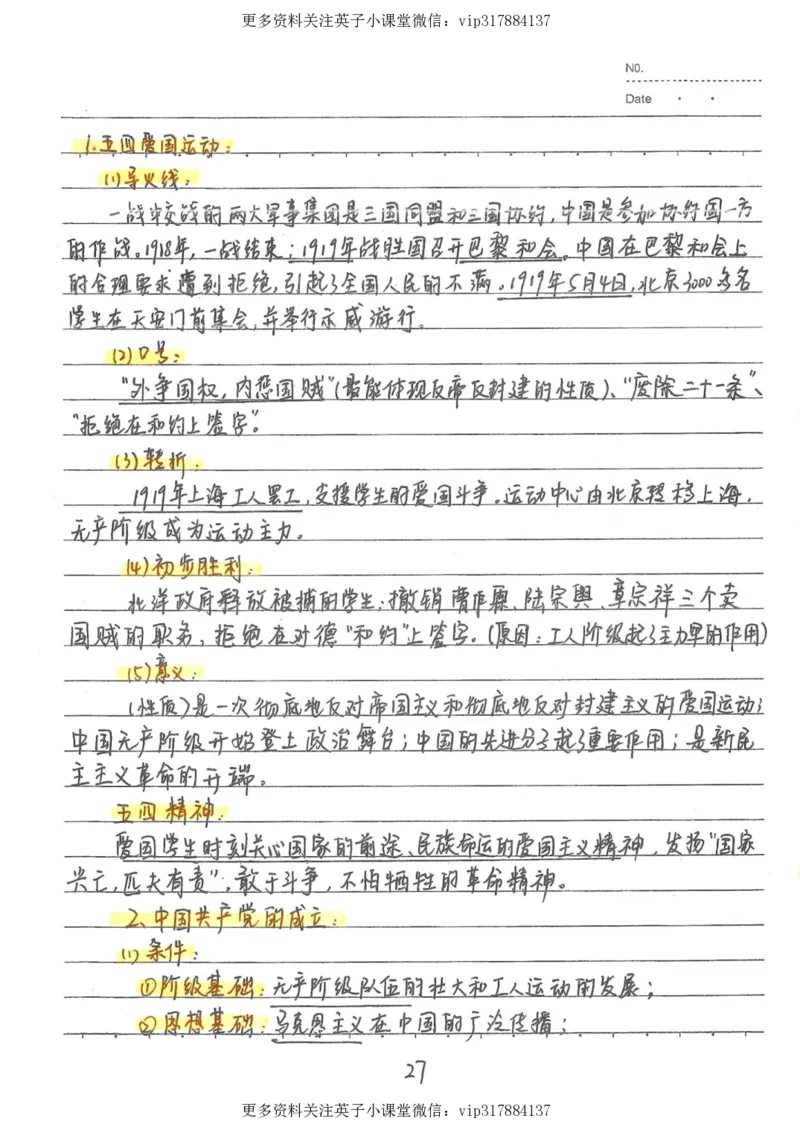 更多资料关注英子小课堂微信：vip317884137
NO.
Date
1.五四爱国运动：
(1)导火线：
一战中交战的两大军事集团是三国同盟和三国协约，中国是参加协约国一方
的作战。1918年，一战结束；1919年战胜国召开巴黎和会。中国在巴黎和会上
的合理要求遭到拒绝，引起了全国人民的不满。1919年5月4日，北京3000多名
学生在天安门前集会，并举行示威游行。
(2)口号：
“外争国权，内惩国贼”(最能体现反帝反封建的性质)、“废除二十一条”、
“拒绝在和约上签字”。
(3)转折：
1919年上海工人罢工，支援学生的爱国斗争。运动中心由北京转移上海，
无产阶级成为运动主力。
(4)初步胜利：
北洋政府释放被捕的学生；撤销曹汝霖、陆宗舆、章宗祥三个卖
国贼的职务；拒绝在对德“和约”上签字。(原因：工人阶级起了主力军的作用)
(5)意义：
(性质)是一次彻底地反对帝国主义和彻底地反对封建主义的爱国运动；
中国无产阶级开始登上政治舞台；中国的先进分子起了重要作用；是新民
主主义革命的开端。
五四精神：
爱国学生时刻关心国家的前途、民族命运的爱国主义精神，发扬“国家
兴亡，匹夫有责”，敢于斗争，不怕牺牲的革命精神。
2、中国共产党的成立：
(1)条件：
①阶级基础：无产阶级队伍的壮大和工人运动的发展；
②思想基础：马克思主义在中国的广泛传播；
27
更多资料关注英子小课堂微信：vip317884137